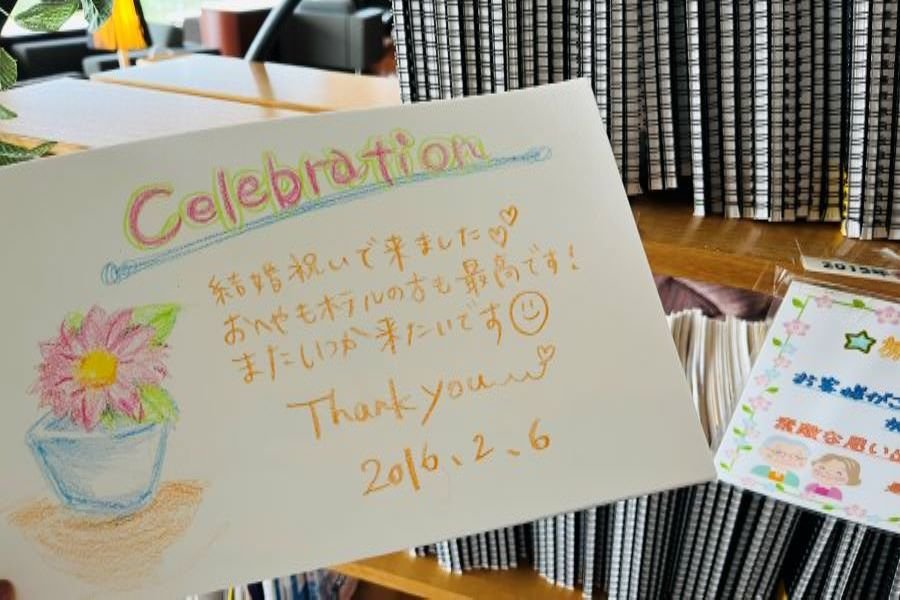 Celebration
結婚祝いで来ました♡♡
おへやもホテルの方も最高です!
またいつか来たいです☺
Thank you♡
2016、2、6
2015年
お客様が
素敵な思い